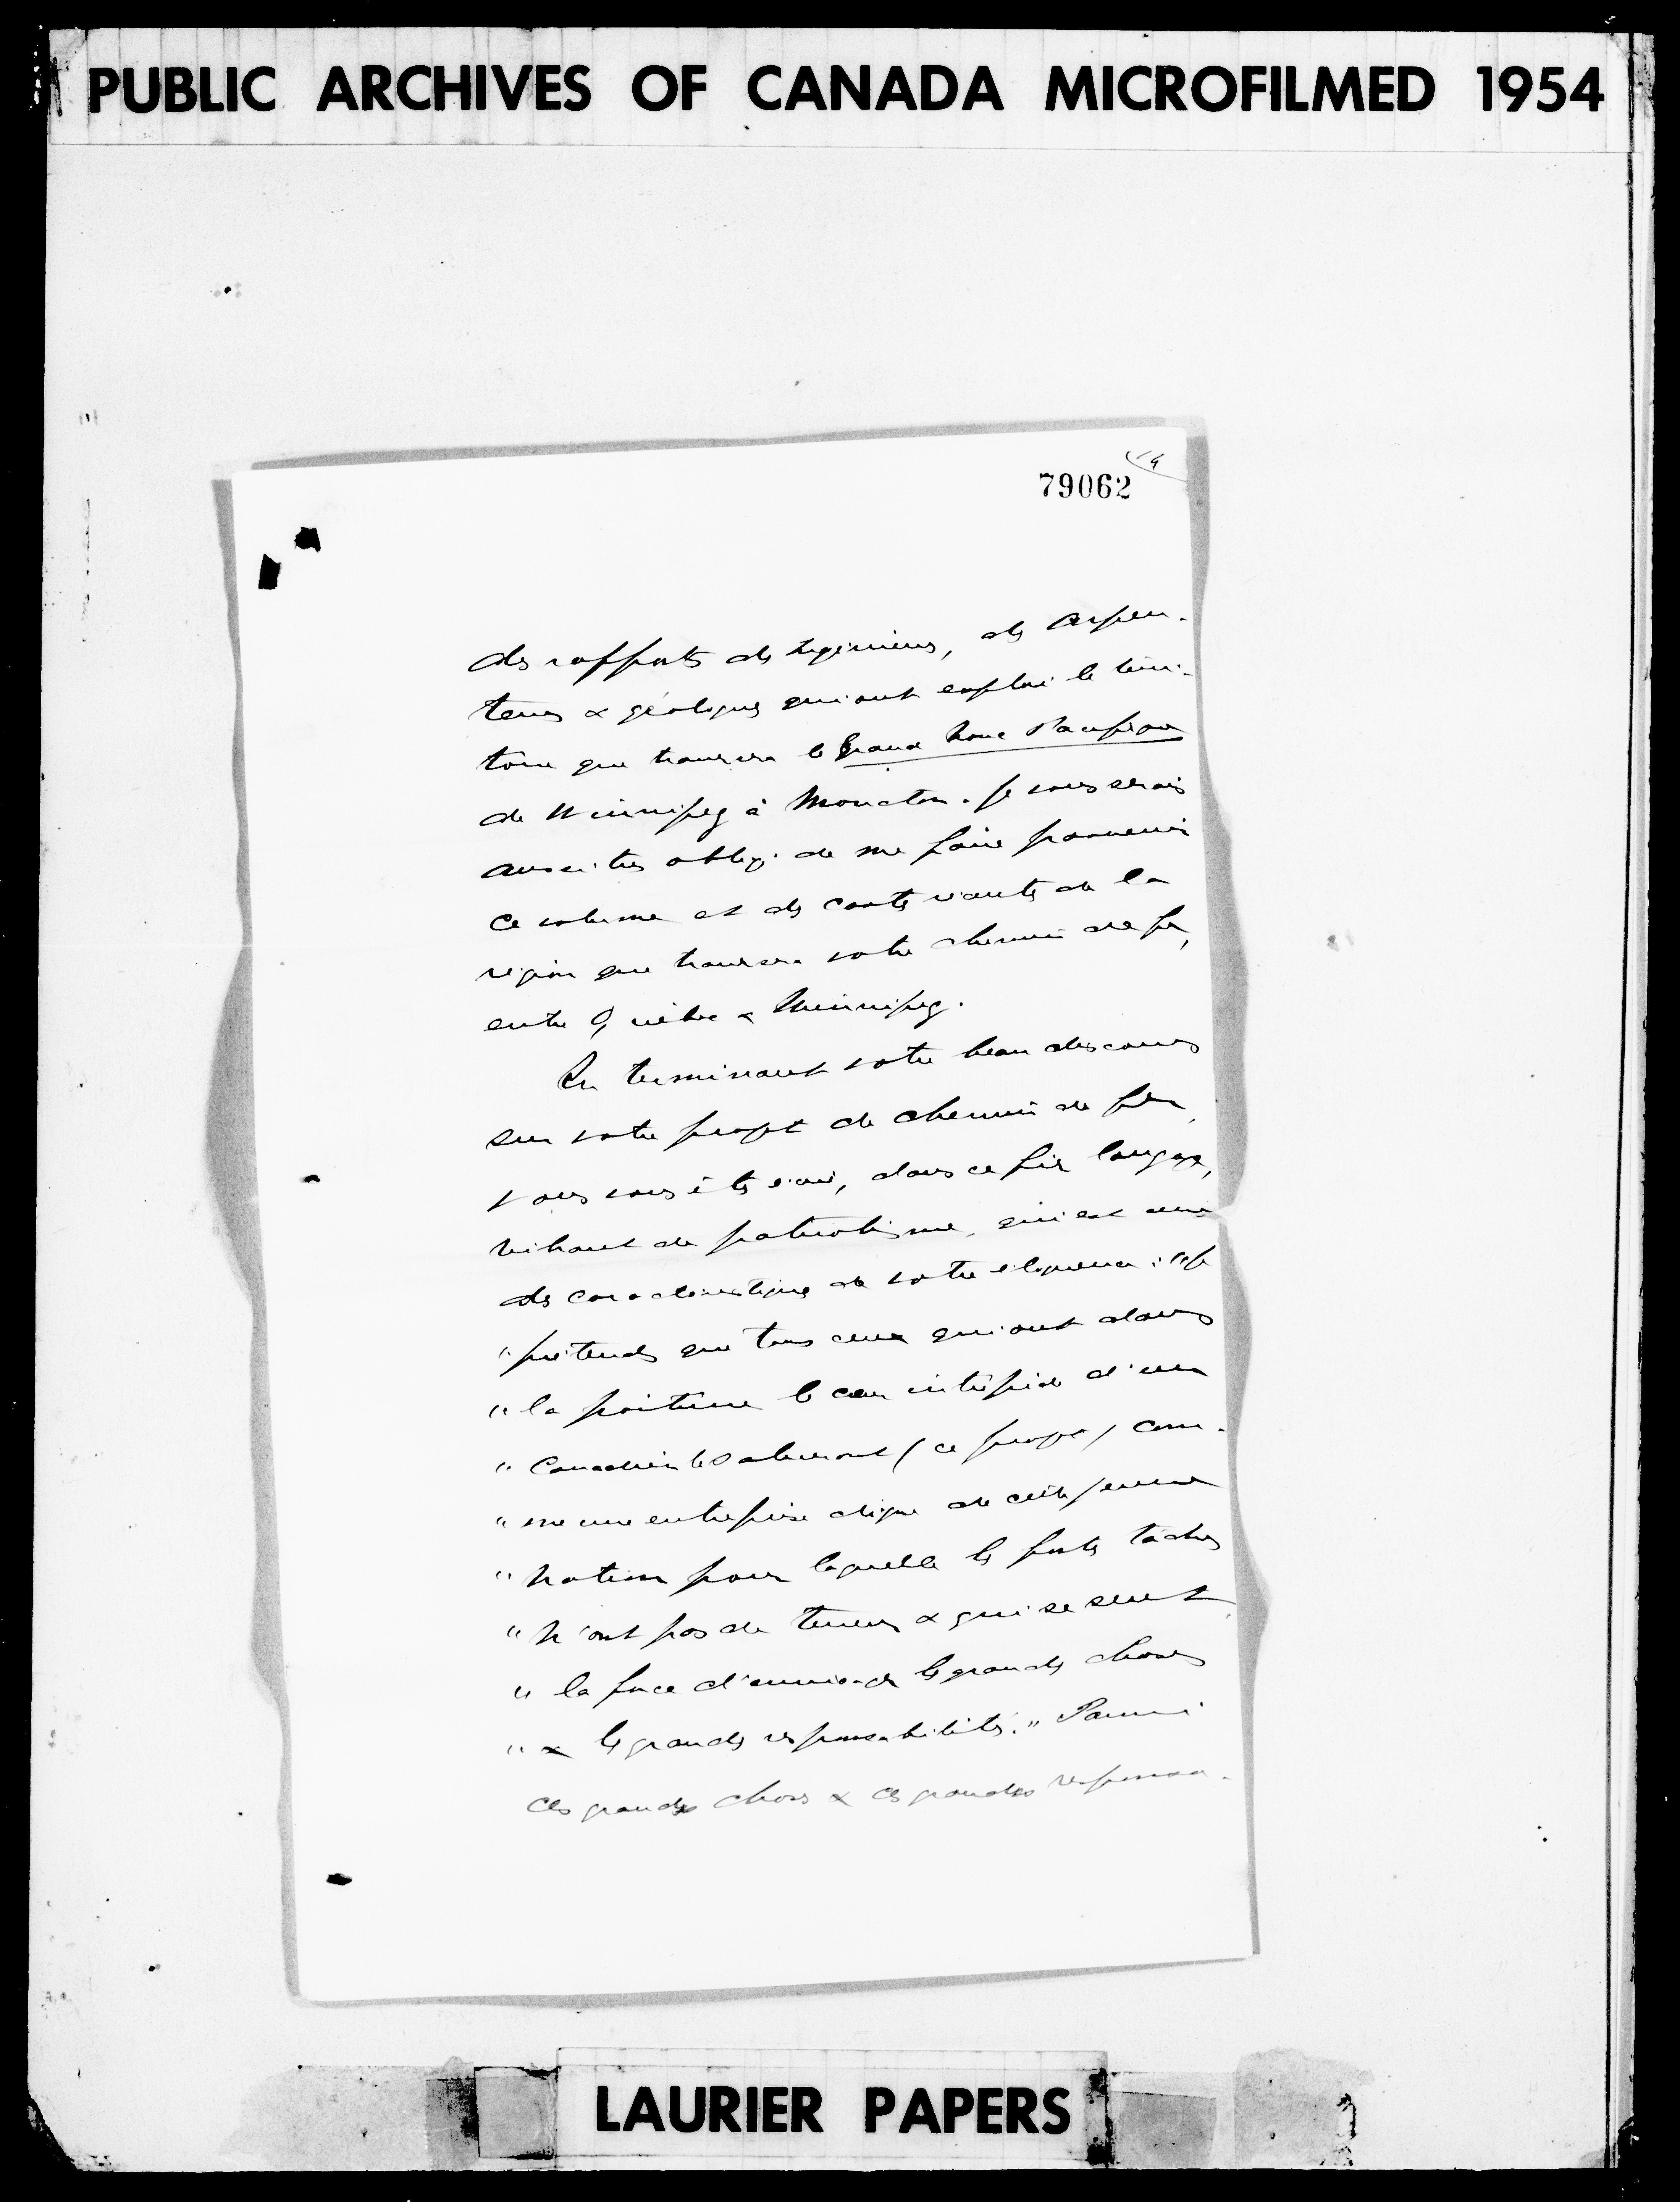 PUBLIC ARCHIVES OF CANADA MICROFILMED 1954
79062
des rapports des ingénieurs, des arpen-
teurs & géologues qui ont exploré le terri-
toire que traversera le Grand Tronc Pacifique
de Winnipeg à Moncton. Je vous serais
aussi très obligé de me faire parvenir
ce volume et des cartes récentes de la
région que traversera votre chemin de fer,
entre Québec & Winnipeg.
En terminant votre beau discours
sur votre projet de chemin de fer,
vous vous êtes écrié, dans ce fier langage,
vibrant de patriotisme, qui est une
des caractéristiques de votre éloquence : "Je
"prétends que tous ceux qui ont dans
"la poitrine le cœur intrépide d'un
"Canadien le salueront (ce projet) com-
"me une entreprise digne de cette jeune
"nation pour laquelle les fortes tâches
"n'ont pas de terreurs & qui se sent
"la force d'envisager les grandes choses
"& les grandes responsabilités." Parmi
ces grandes choses & ces grandes responsa-
LAURIER PAPERS